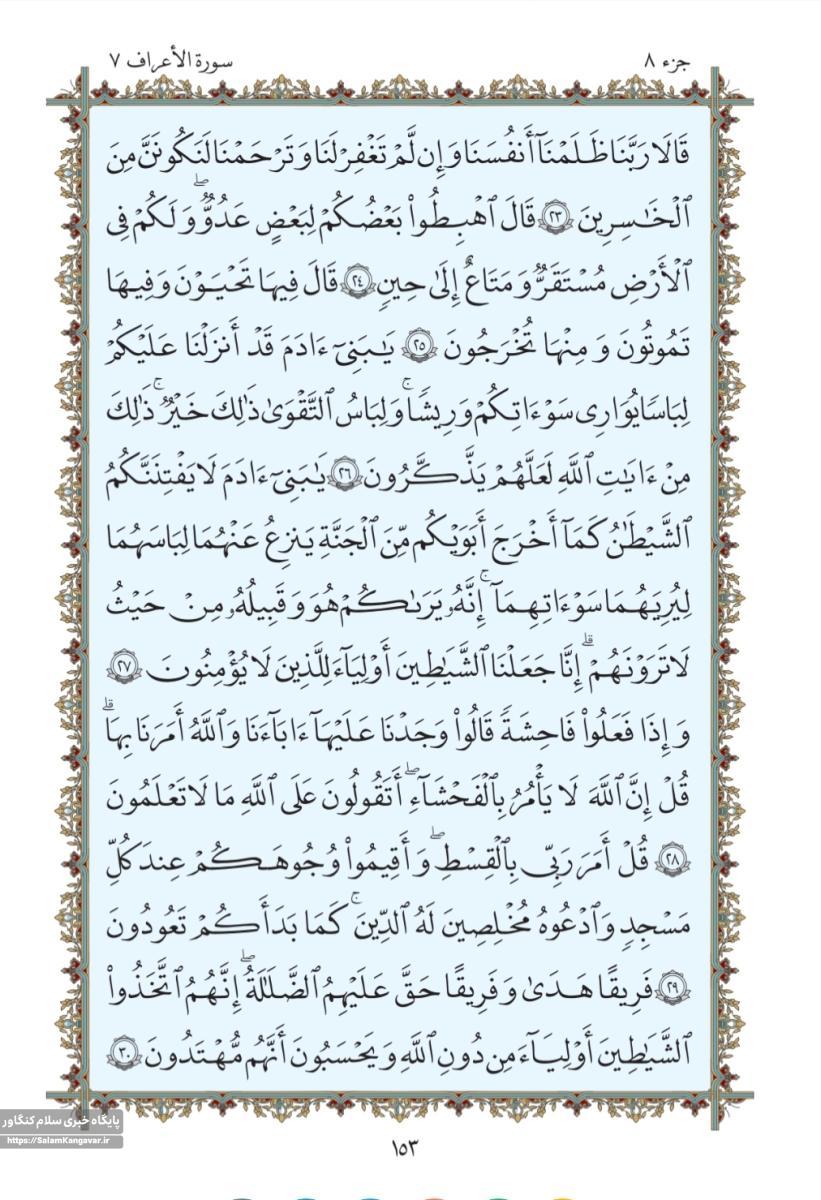 جزء ٨
سورة الأعراف ٧
قَالَا رَبَّنَا ظَلَمْنَآ أَنفُسَنَا وَإِن لَّمْ تَغْفِرْ لَنَا وَتَرْحَمْنَا لَنَكُونَنَّ مِنَ
ٱلْخَٰسِرِينَ ٢٣ قَالَ ٱهْبِطُوا۟ بَعْضُكُمْ لِبَعْضٍ عَدُوٌّ ۖ وَلَكُمْ فِى
ٱلْأَرْضِ مُسْتَقَرٌّ وَمَتَاعٌ إِلَىٰ حِينٍ ٢٤ قَالَ فِيهَا تَحْيَوْنَ وَفِيهَا
تَمُوتُونَ وَمِنْهَا تُخْرَجُونَ ٢٥ يَٰبَنِىٓ ءَادَمَ قَدْ أَنزَلْنَا عَلَيْكُمْ
لِبَاسًا يُوَٰرِى سَوْءَٰتِكُمْ وَرِيشًا ۖ وَلِبَاسُ ٱلتَّقْوَىٰ ذَٰلِكَ خَيْرٌ ۚ ذَٰلِكَ
مِنْ ءَايَٰتِ ٱللَّهِ لَعَلَّهُمْ يَذَّكَّرُونَ ٢٦ يَٰبَنِىٓ ءَادَمَ لَا يَفْتِنَنَّكُمُ
ٱلشَّيْطَٰنُ كَمَآ أَخْرَجَ أَبَوَيْكُم مِّنَ ٱلْجَنَّةِ يَنزِعُ عَنْهُمَا لِبَاسَهُمَا
لِيُرِيَهُمَا سَوْءَٰتِهِمَآ ۚ إِنَّهُۥ يَرَىٰكُمْ هُوَ وَقَبِيلُهُۥ مِنْ حَيْثُ
لَا تَرَوْنَهُمْ ۗ إِنَّا جَعَلْنَا ٱلشَّيَٰطِينَ أَوْلِيَآءَ لِلَّذِينَ لَا يُؤْمِنُونَ ٢٧
وَإِذَا فَعَلُوا۟ فَٰحِشَةً قَالُوا۟ وَجَدْنَا عَلَيْهَآ ءَابَآءَنَا وَٱللَّهُ أَمَرَنَا بِهَا ۗ
قُلْ إِنَّ ٱللَّهَ لَا يَأْمُرُ بِٱلْفَحْشَآءِ ۖ أَتَقُولُونَ عَلَى ٱللَّهِ مَا لَا تَعْلَمُونَ
٢٨ قُلْ أَمَرَ رَبِّى بِٱلْقِسْطِ ۖ وَأَقِيمُوا۟ وُجُوهَكُمْ عِندَ كُلِّ
مَسْجِدٍ وَٱدْعُوهُ مُخْلِصِينَ لَهُ ٱلدِّينَ ۚ كَمَا بَدَأَكُمْ تَعُودُونَ
٢٩ فَرِيقًا هَدَىٰ وَفَرِيقًا حَقَّ عَلَيْهِمُ ٱلضَّلَٰلَةُ ۖ إِنَّهُمُ ٱتَّخَذُوا۟
ٱلشَّيَٰطِينَ أَوْلِيَآءَ مِن دُونِ ٱللَّهِ وَيَحْسَبُونَ أَنَّهُم مُّهْتَدُونَ ٣٠
پایگاه خبری سلام کنگاور
https://SalamKangavar.ir
١٥٣